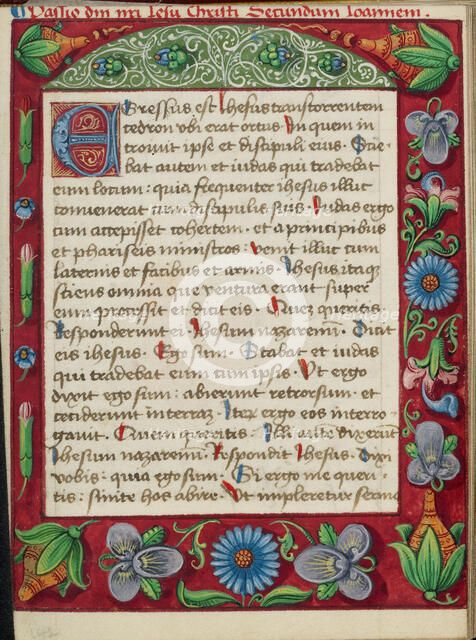 Passio dni nri Jesu Christi Secundum Joannem.
Egressus est Jhesus trans torrentem
cedron vbi erat ortus. In quem in
troiuit ipse et discipuli eius. Scie
bat autem et iudas qui tradebat
eum locum: quia frequenter ihesus illuc
conuenerat cum discipulis suis. Iudas ergo
cum accepisset cohortem. et a principibus
et phariseis ministros: venit illuc cum
laternis et facibus et armis. Jhesus itaq
sciens omnia que ventura erant super
eum processit et dicit eis. Quez queritis
Responderunt ei. Jhesum nazarenum. Dicit
eis ihesus. Ego sum. Stabat et iudas
qui tradebat eum cum ipsis. Ut ergo
dixit ego sum: abierunt retrorsum. et
ceciderunt in terraz. Iter ergo eos interro
gauit. Quem queritis. Illi aute dixerut
Jhesum nazarenum. Respondit Jhesus. Dixi
vobis. quia ego sum. Si ergo me queri
tis: sinite hos abire. Ut impleretur